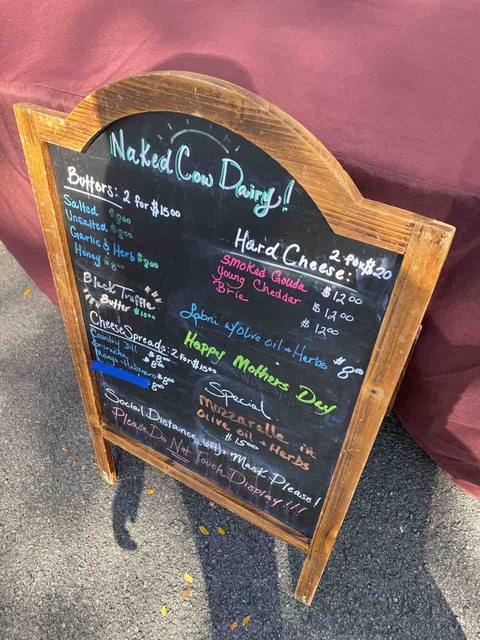 Naked Cow Dairy!
Buttors: 2 for $15.00
Salted $8.00
Unsalted $8.00
Garlic & Herb $8.00
Honey $8.00
Black Truffle
Butter $10.00
Cheese Spreads: 2 for $15.00
Country Dill $8.00
Sriracha $8.00
Mango Habanero $8.00
$8.00
Hard Cheese: 2 for $20
Smoked Gouda $12.00
Young Cheddar $12.00
Brie $12.00
Labni w/olive oil + Herbs $8.00
Happy Mothers Day
Special.
Mozzarella in
Olive oil + Herbs
$15.00
Social Distance (6ft) + Mask Please!
Please Do Not Touch Display!!!